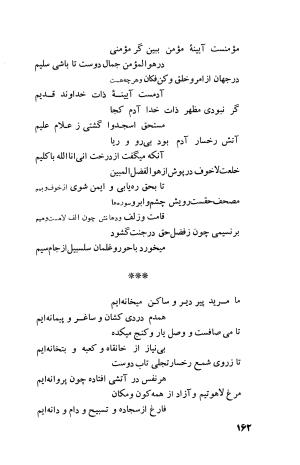 مؤمنست آیینهٔ مؤمن ببین گر مؤمنی
در هوالمؤمن جمال دوست تا باشی سلیم
در جهان از امر و خلق و کن فکان و هر چه هست
آدمست آیینهٔ ذات خداوند قدیم
گر نبودی مظهر ذات خدا آدم کجا
مستحق اسجدوا گشتی ز علام علیم
آتش رخسار آدم بود بی‌رو و ریا
آنکه میگفت از درخت انی اناالله با کلیم
خلعت لاخوف در پوش از هوالفضل المبین
تا بحق ره‌یابی و ایمن شوی از خوف و بیم
مصحف حقست رویش چشم و ابرو سوره‌ها
قامت و زلف و دهانش چون الف لامست و میم
بر نسیمی چون ز فضل حق در جنت گشود
میخورد با حور و غلمان سلسبیل از جام سیم
***
ما مرید پیر دیر و ساکن میخانه‌ایم
همدم دردی کشان و ساغر و پیمانه‌ایم
تا می صافست و وصل یار و کنج میکده
بی‌نیاز از خانقاه و کعبه و بتخانه‌ایم
تا ز روی شمع رخسار تجلی تاب دوست
هر نفس در آتشی افتاده چون پروانه‌ایم
مرغ لاهوتیم و آزاد از همه کون و مکان
فارغ از سجاده و تسبیح و دام و دانه‌ایم
۱۶۲